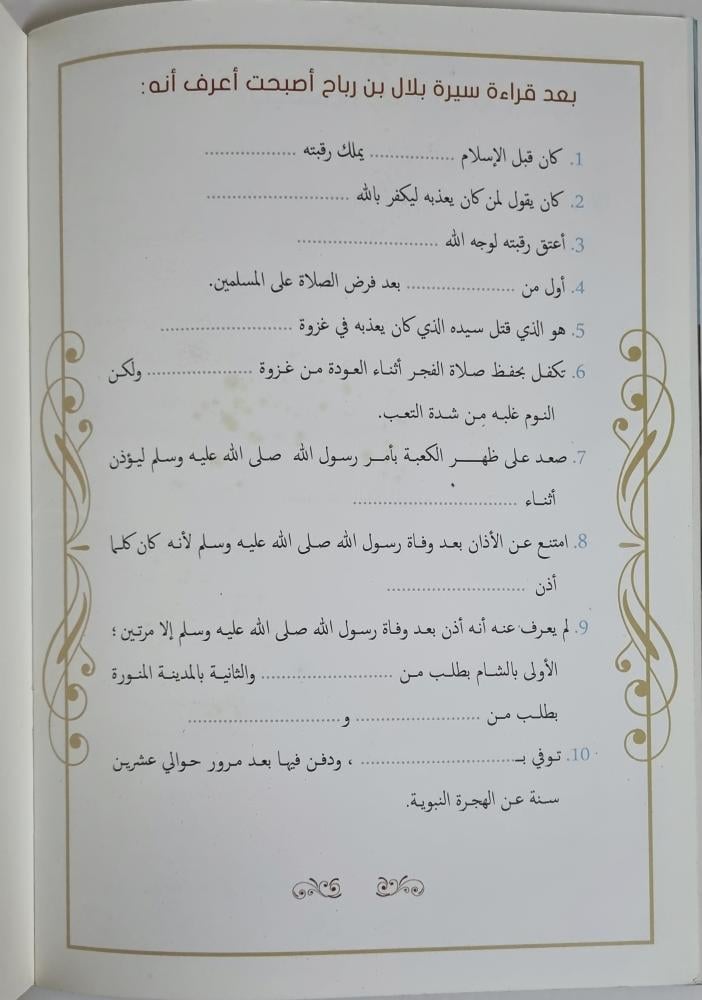 بعد قراءة سيرة بلال بن رباح أصبحت أعرف أنه:
1. كان قبل الإسلام ................. يملك رقبته ..................
2. كان يقول لمن كان يعذبه ليكفر بالله ............................
3. أعتق رقبته لوجه الله ............................
4. أول من ...................... بعد فرض الصلاة على المسلمين.
5. هو الذي قتل سيده الذي كان يعذبه في غزوة ..........................
6. تكفل بحفظ صلاة الفجر أثناء العودة من غزوة ..................... ولكن
النوم غلبه من شدة التعب.
7. صعد على ظهر الكعبة بأمر رسول الله صلى الله عليه وسلم ليؤذن
أثناء .................................
8. امتنع عن الأذان بعد وفاة رسول الله صلى الله عليه وسلم لأنه كان كلما
أذن ............................
9. لم يعرف عنه أنه أذن بعد وفاة رسول الله صلى الله عليه وسلم إلا مرتين؛
الأولى بالشام بطلب من .......................... والثانية بالمدينة المنورة
بطلب من ......................... و...............................
10. توفي بـ............................... ، ودفن فيها بعد مرور حوالي عشرين
سنة عن الهجرة النبوية.